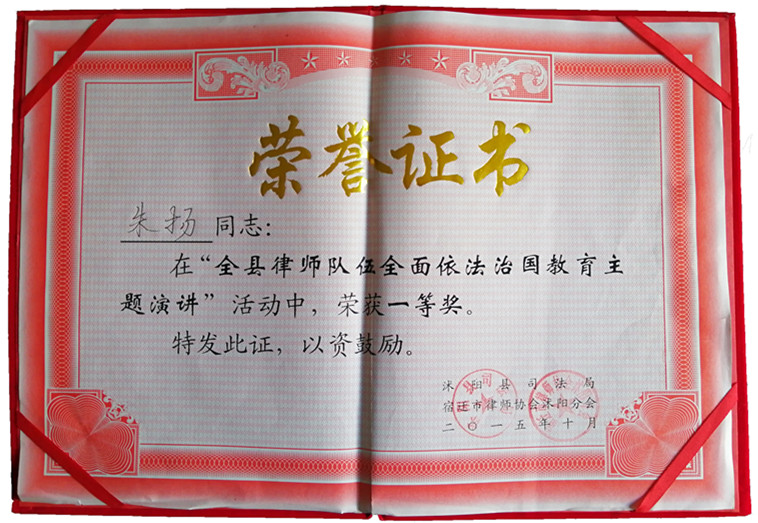 荣誉证书
朱扬 同志：
在“全县律师队伍全面依法治国教育主
题演讲”活动中，荣获一等奖。
特发此证，以资鼓励。
沭阳县司法局
宿迁市律师协会沭阳分会
二〇一五年十月